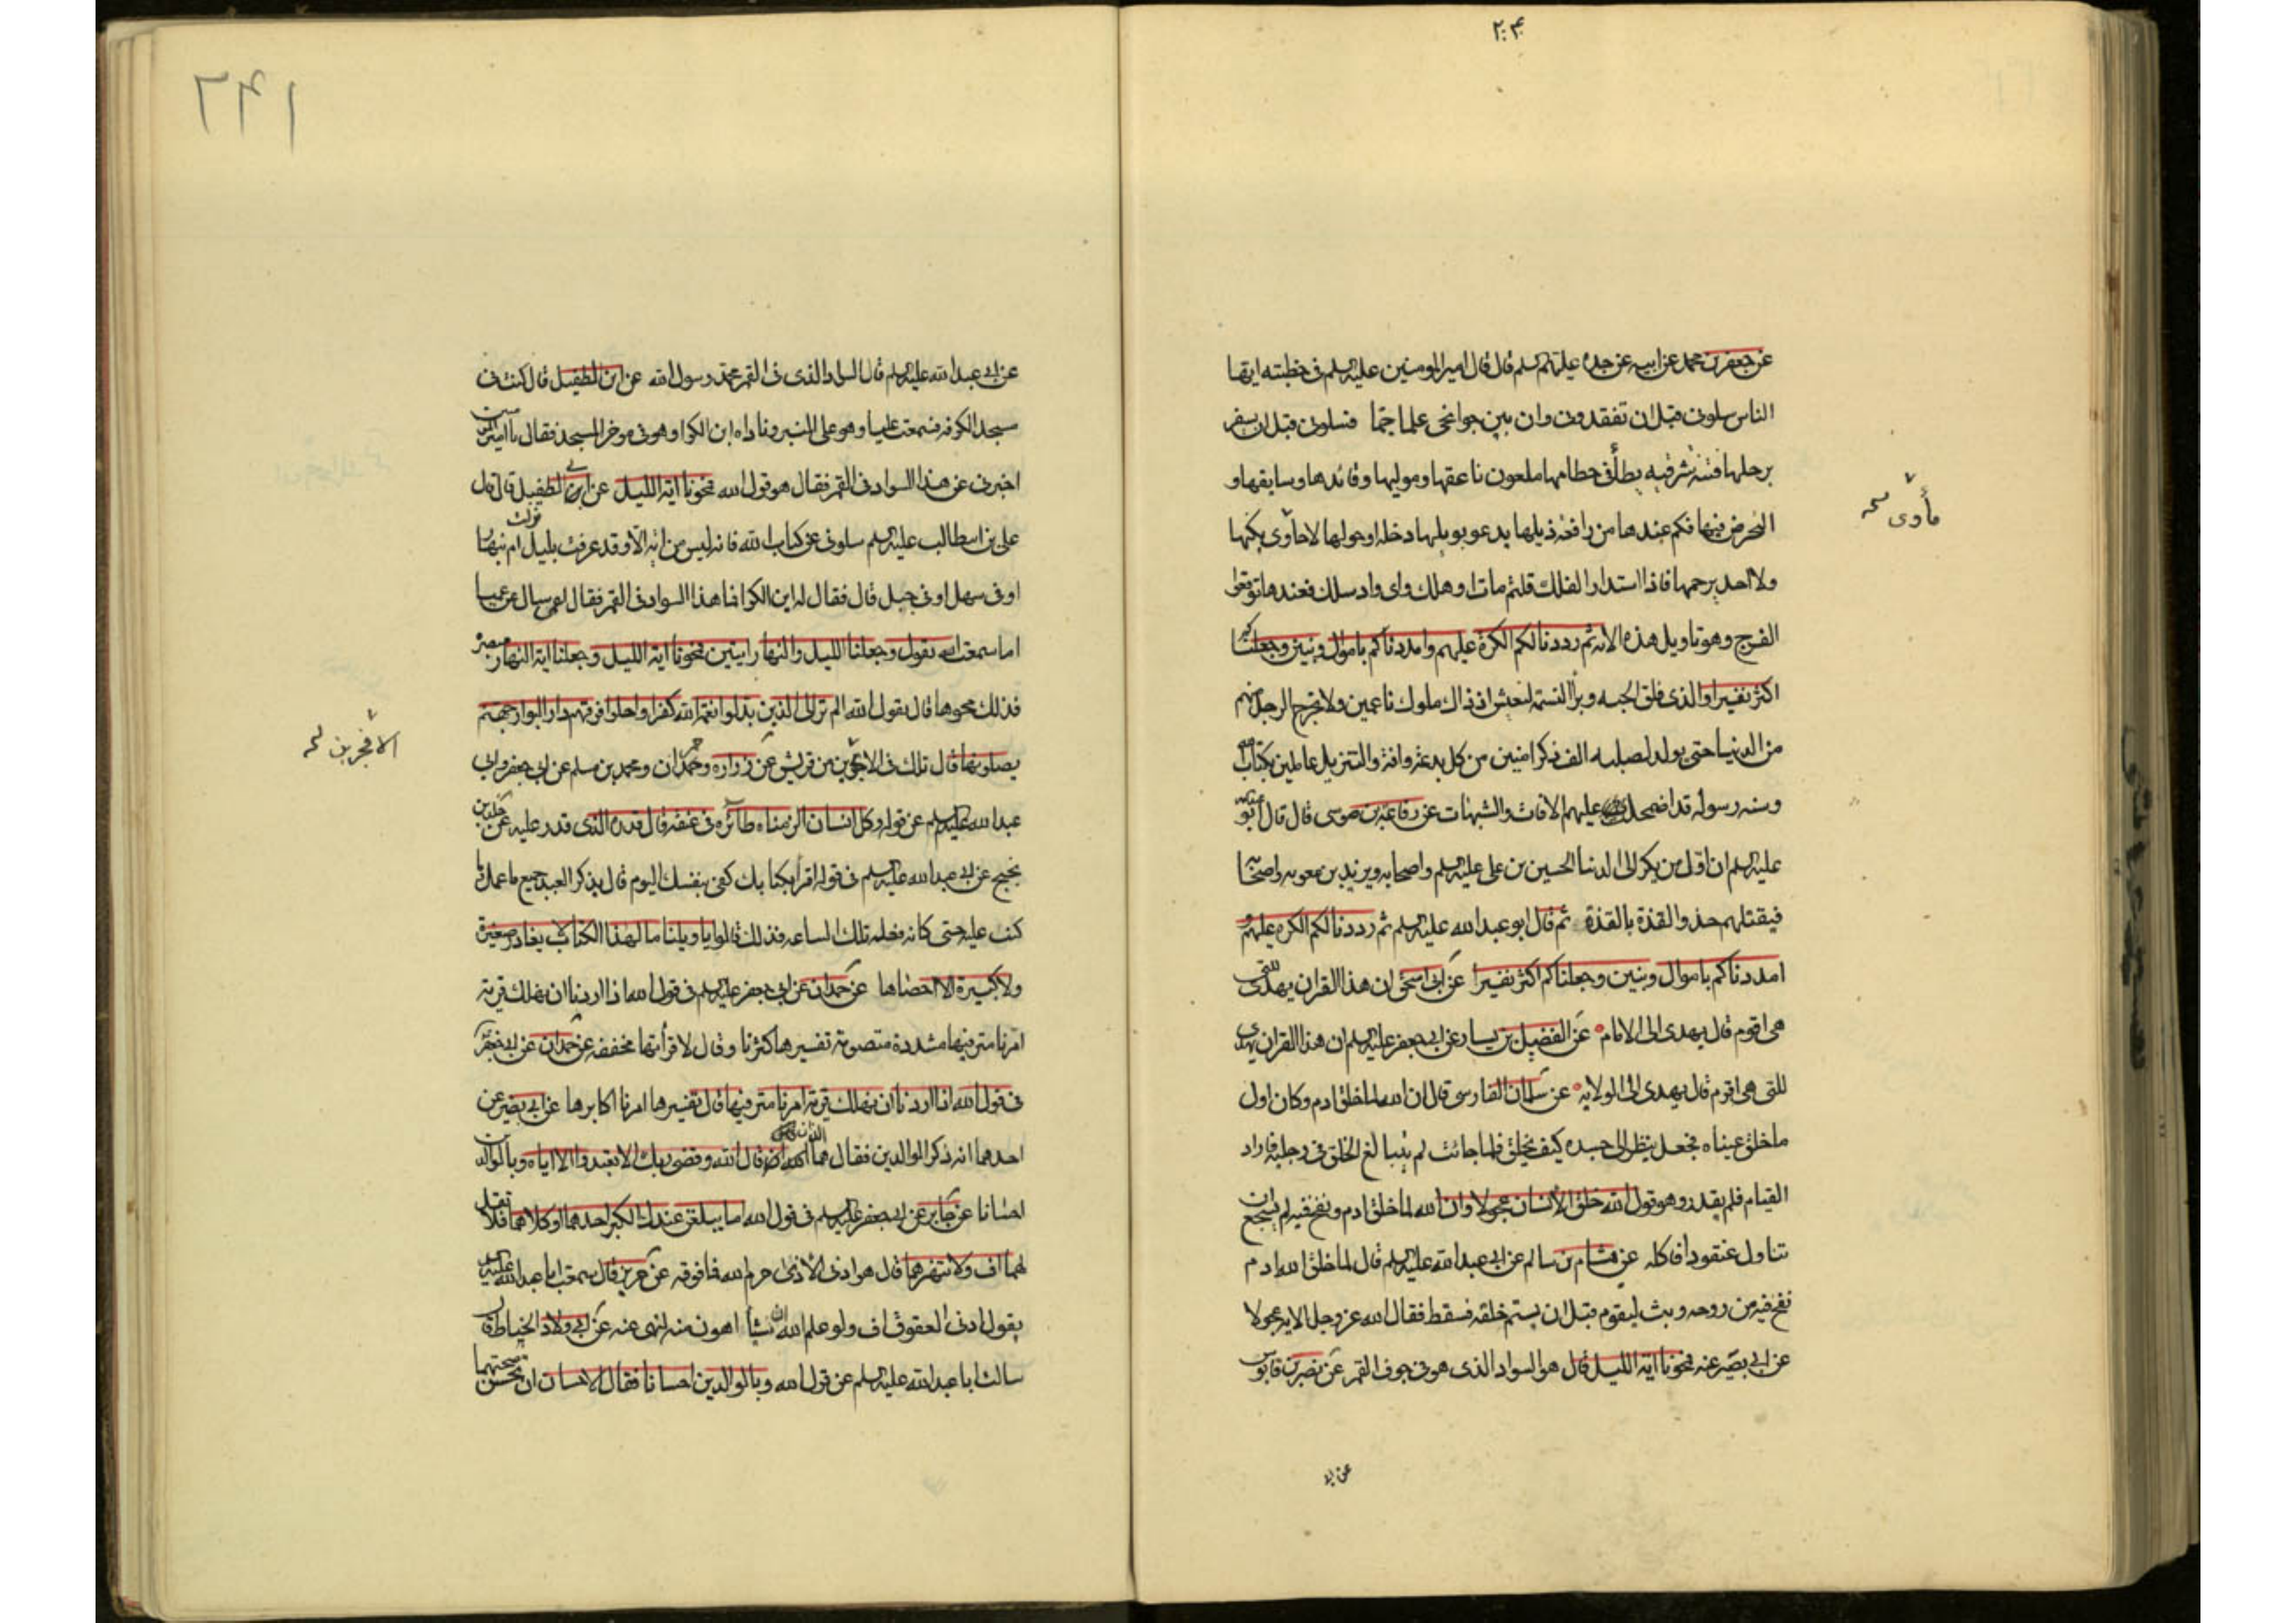 ۲۰۴
عن جعفر بن محمد عن ابيه عن جده عليهم السلم قال قال امير المومنين عليه السلم فى خطبته ايها
الناس سلونى قبل ان تفقدونى وان بين جوانحى علما جمّا فسلونى قبل ان يسفر
برجلها فتنه شرقيه يطأ فى حطامها ملعون ناعقها وموليها وقائدها وسابقها و
المحرض فيها فكم عندها من رافعه ذيلها يدعو بويلها دخله او حولها لا مأوى يكنها
مأوى
ولا احد يرحمها فاذا استدار الفلك قلتم مات او هلك واى واد سلك فعندها توقعوا
الفرج وهو تاويل هذه الايه ثم رددنا لكم الكرة عليهم وامددناكم باموال وبنين وجعلناكم
اكثر نفيرا والذى فلق الحبه وبرأ النسمه ليعيش اذ ذاك ملوك ناعمين ولا يخرج الرجل منهم
من الدنيا حتى يولد لصلبه الف ذكر امنين من كل بدعة وافة والتنزيل عاملين بكتاب الله
وسنه رسوله قد اضمحلت عليهم الافات والشبهات عن رفاعة بن موسى قال قال ابو عبدالله
عليه السلم ان اول من يكر الى الدنيا الحسين بن على عليه السلم واصحابه ويزيد بن معويه واصحابه
فيقتلهم حذو القذة بالقذة ثم قال ابو عبد الله عليه السلم ثم رددنا لكم الكره عليهم و
امددناكم باموال وبنين وجعلناكم اكثر نفيرا عن ابى اسحق ان هذا القران يهدى للتى
هى اقوم قال يهدى الى الامام عن الفضيل بن يسار عن ابى جعفر عليه السلم ان هذا القران يهدى
للتى هى اقوم قال يهدى الى الولايه عن سلمان الفارسى قال ان الله لما خلق ادم وكان اول
ما خلق عيناه فجعل ينظر الى جسده كيف يخلق فلما حانت لم يتبالغ الخلق فى رجليه فاراد
القيام فلم يقدر وهو قول الله خلق الانسان عجولا وان الله لما خلق ادم ونفخ فيه لم يستجمع ان
تناول عنقودا فاكله عن هشام بن سالم عن ابى عبدالله عليه السلم قال لما خلق الله ادم
نفخ فيه من روحه وبث ليقوم قبل ان يستتم خلقه فسقط فقال الله عز وجل الايه عجولا
عن ابى بصير عنه فمحونا اية الليل قال هو السواد الذى هو فى جوف القمر عن نصر بن قابوس
عن ابى
۱۹۲
عن ابى عبدالله عليه السلم قال السواد الذى فى القمر محمد رسول الله عن ابن الطفيل قال كنت فى
مسجد الكوفه فسمعت عليا وهو على المنبر وناداه ابن الكوا وهو فى موخر المسجد فقال يا امير المومنين
اخبرنى عن هذا السواد فى القمر فقال هو قول الله فمحونا اية الليل عن ابى الطفيل قال قال
على بن ابيطالب عليه السلم سلونى عن كتاب الله فانه ليس من ايه الا وقد عرفت بليل نزلت ام نهار
او فى سهل او فى جبل قال فقال له ابن الكوا فما هذا السواد فى القمر فقال اعمى سال عن عميا
اما سمعت الله يقول وجعلنا الليل والنهار ايتين فمحونا اية الليل وجعلنا اية النهار مبصرة
فذلك محوها قال يقول الله الم تر الى الذين بدلوا نعمة الله كفرا واحلوا قومهم دار البوار جهنم
يصلونها قال تلك فى الافجرين من قريش عن زراره وحمران ومحمد بن مسلم عن ابى جعفر وابى
الافجرين
عبدالله عليه السلم عن قوله وكل انسان الزمناه طائره فى عنقه قال قدره الذى قدر عليه عن خالد بن
نجيح عن ابى عبدالله عليه السلم فى قوله اقرأ كتابك كفى بنفسك اليوم قال يذكر العبد جميع ما عمل وما
كتب عليه حتى كانه فعله تلك الساعه فذلك قالوا يا ويلتنا ما لهذا الكتاب لا يغادر صغيرة
ولا كبيرة الا احصاها عن حمران عن ابى جعفر عليه السلم فى قول الله اذا اردنا ان نهلك قرية
امرنا مترفيها مشددة منصوبة تفسيرها كثرنا وقال لا قرأتها مخففه عن حمران عن ابى جعفر
فى قول الله اذا اردنا ان نهلك قرية امرنا مترفيها قال تفسيرها امرنا اكابرها عن ابى بصير عن
احدهما انه ذكر الوالدين فقال هما اللذان قال الله وقضى ربك الا تعبدوا الا اياه وبالوالدين
احسانا عن جابر عن ابى جعفر عليه السلم فى قول الله اما يبلغن عندك الكبر احدهما او كلاهما فلا تقل
لهما اف ولا تنهرهما قال هو ادنى الاذى حرم الله فما فوقه عن حريز قال سمعت ابا عبدالله عليه السلم
يقول ادنى العقوق اف ولو علم الله ان شيأ اهون منه لنهى عنه عن ابى ولاد الحناط قال
سالت ابا عبدالله عليه السلم عن قول الله وبالوالدين احسانا فقال الاحسان ان تحسن صحبتهما